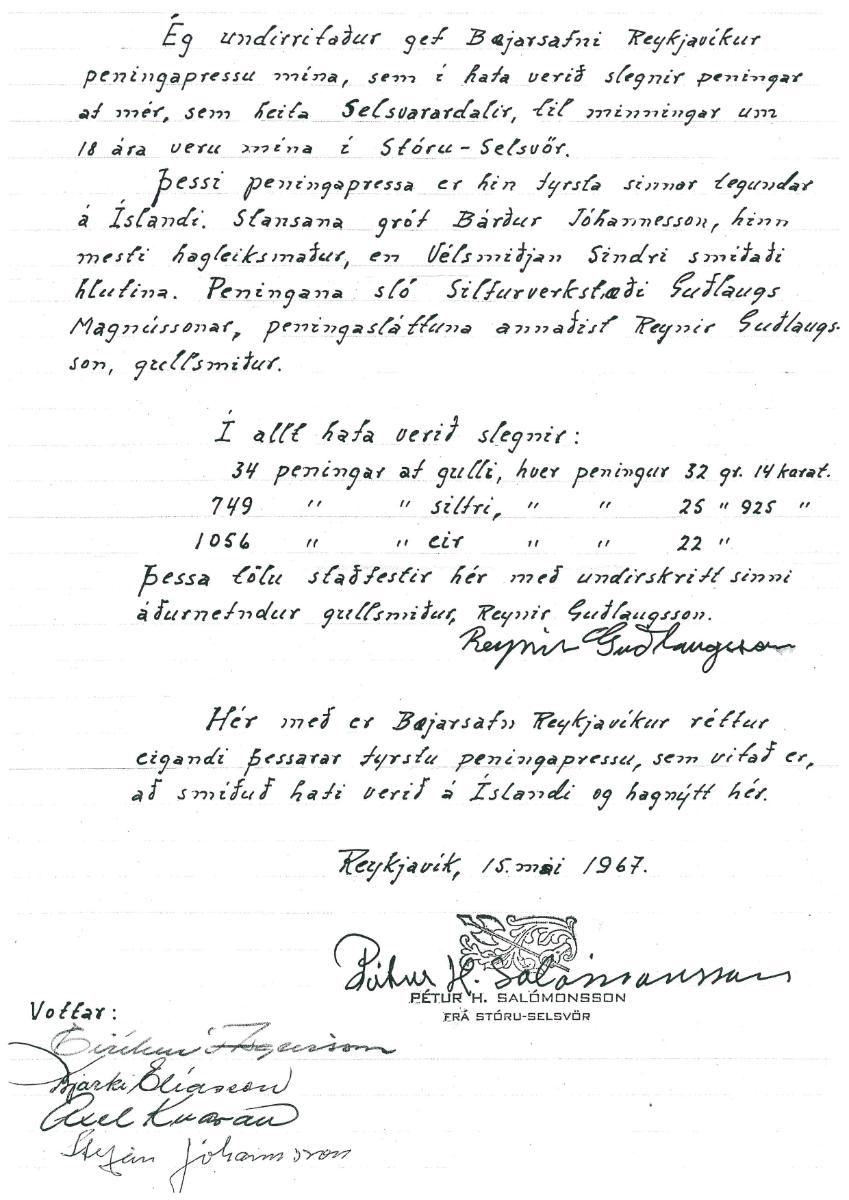 Ég undirritaður gef Bæjarsafni Reykjavíkur
peningapressu mína, sem í hafa verið slegnir peningar
af mér, sem heita Selsvarardalir, til minningar um
18 ára veru mína í Stóru-Selsvör.
Þessi peningapressa er hin fyrsta sinnar tegundar
á Íslandi. Stansana gróf Bárður Jóhannesson, hinn
mesti hagleiksmaður, en Vélsmiðjan Sindri smíðaði
hlutina. Peningana sló Silfurverkstæði Guðlaugs
Magnússonar, peningasláttuna annaðist Reynir Guðlaugs-
son, gullsmiður.
Í allt hafa verið slegnir:
34 peningar af gulli, hver peningur 32 gr. 14 karat.
749 " " silfri, " " 25 " 925 "
1056 " " eir " " 22 "
Þessa tölu staðfestir hér með undirskrift sinni
áðurnefndur gullsmiður, Reynir Guðlaugsson.
Reynir Guðlaugsson
Hér með er Bæjarsafn Reykjavíkur réttur
eigandi þessarar fyrstu peningapressu, sem vitað er,
að smíðuð hafi verið á Íslandi og hagnýtt hér.
Reykjavík, 15. mai 1967.
Pétur H. Salómonsson
PÉTUR H. SALÓMONSSON
FRÁ STÓRU-SELSVÖR
Vottar:
Bjarki Elíasson
Axel Kvaran
Stefán Jóhannsson